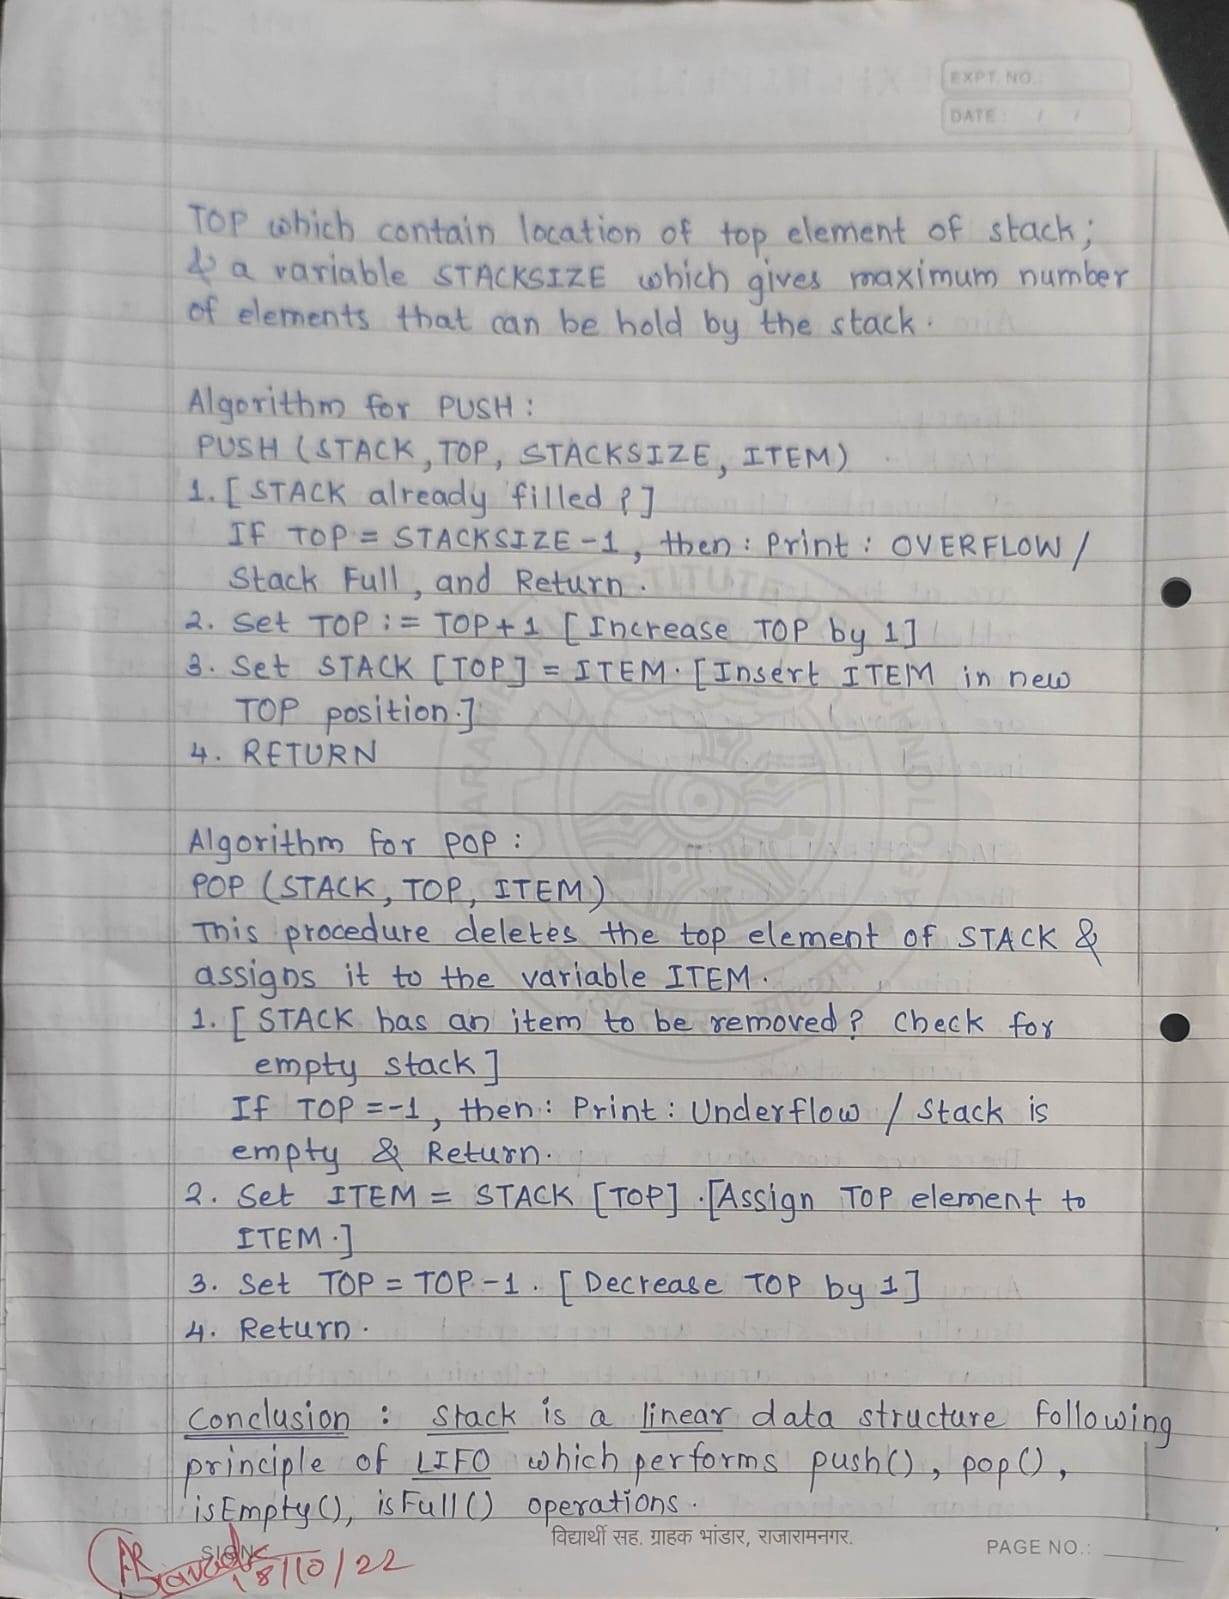 EXPT. NO.
DATE : / /
TOP which contain location of top element of stack;
& a variable STACKSIZE which gives maximum number
of elements that can be hold by the stack.
Algorithm for PUSH :
PUSH (STACK, TOP, STACKSIZE, ITEM)
1. [STACK already filled ?]
If TOP = STACKSIZE-1, then : Print : OVERFLOW /
Stack Full, and Return.
2. Set TOP := TOP+1 [Increase TOP by 1]
3. Set STACK [TOP] = ITEM. [Insert ITEM in new
TOP position.]
4. RETURN
Algorithm for POP :
POP (STACK, TOP, ITEM)
This procedure deletes the top element of STACK &
assigns it to the variable ITEM.
1. [STACK has an item to be removed? Check for
empty stack]
If TOP =-1, then : Print : Underflow / Stack is
empty & Return.
2. Set ITEM = STACK [TOP]. [Assign TOP element to
ITEM.]
3. Set TOP = TOP-1. [Decrease TOP by 1]
4. Return.
Conclusion : Stack is a linear data structure following
principle of LIFO which performs push(), pop(),
isEmpty(), isFull() operations.
विद्यार्थी सह. ग्राहक भांडार, राजारामनगर.
SIGN
18/10/22
PAGE NO.: